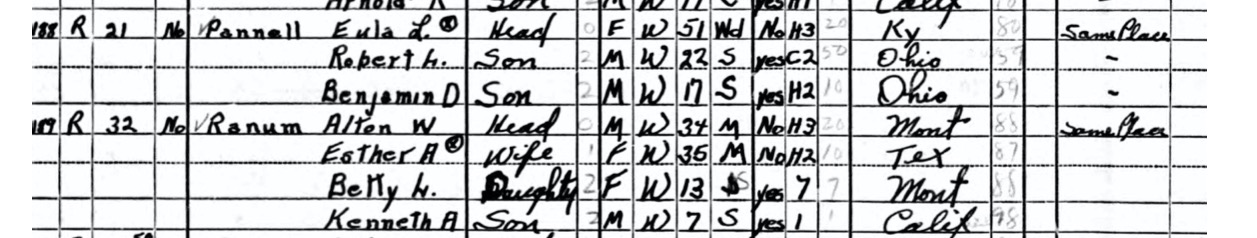 Arnold R Son 2 M W 17 S yes H1 Calif
188 R 21 No Pannell Eula L. Head 0 F W 51 Wd No H3 20 Ky 80 Same Place
Robert L. Son 2 M W 22 S yes C2 50 Ohio 59 -
Benjamin D Son 2 M W 17 S yes H2 10 Ohio 59 -
189 R 32 No Ranum Alton W Head 0 M W 34 M No H3 20 Mont 88 Same Place
Esther A Wife 1 F W 35 M No H2 10 Tex 87
Betty L. Daughty 2 F W 13 S yes 7 7 Mont 88
Kenneth A Son 2 M W 7 S yes 1 1 Calif 98